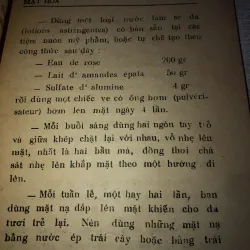 MẶT HOA
— Dùng một loại nước làm se da
(lotions astringentes) có bán sẵn tại các
tiệm nước mỹ phẩm, hoặc tự chế tạo theo
công thức sau đây :
— Eau de rose 200 gr
— Lait d' amandes epais 50 gr
— Sulfate d' alumine 4 gr
rồi dùng một chiếc ve có ống bơm (pulvéri-
sateur) bơm lên mặt ngày 4 lần.
— Mỗi buổi sáng dùng hai ngón tay trỏ
và giữa khép chặt lại với nhau, vỗ nhẹ lên
mặt, nhất là hai bầu má, đồng thời chà
sát nhẹ lên khắp mặt theo một hướng đi
lên.
— Mỗi tuần lễ, một hay hai lần, bạn
dùng mặt nạ đắp lên mặt khiến cho da
tươi trẻ lại. Nên dùng những mặt nạ
bằng nước ép trái cây hoặc bằng trái